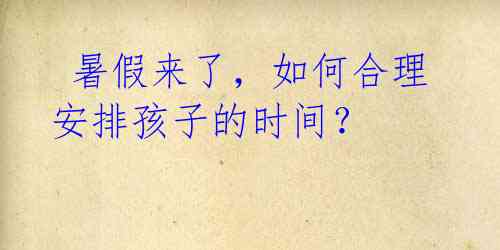 暑假来了，如何合理
安排孩子的时间？